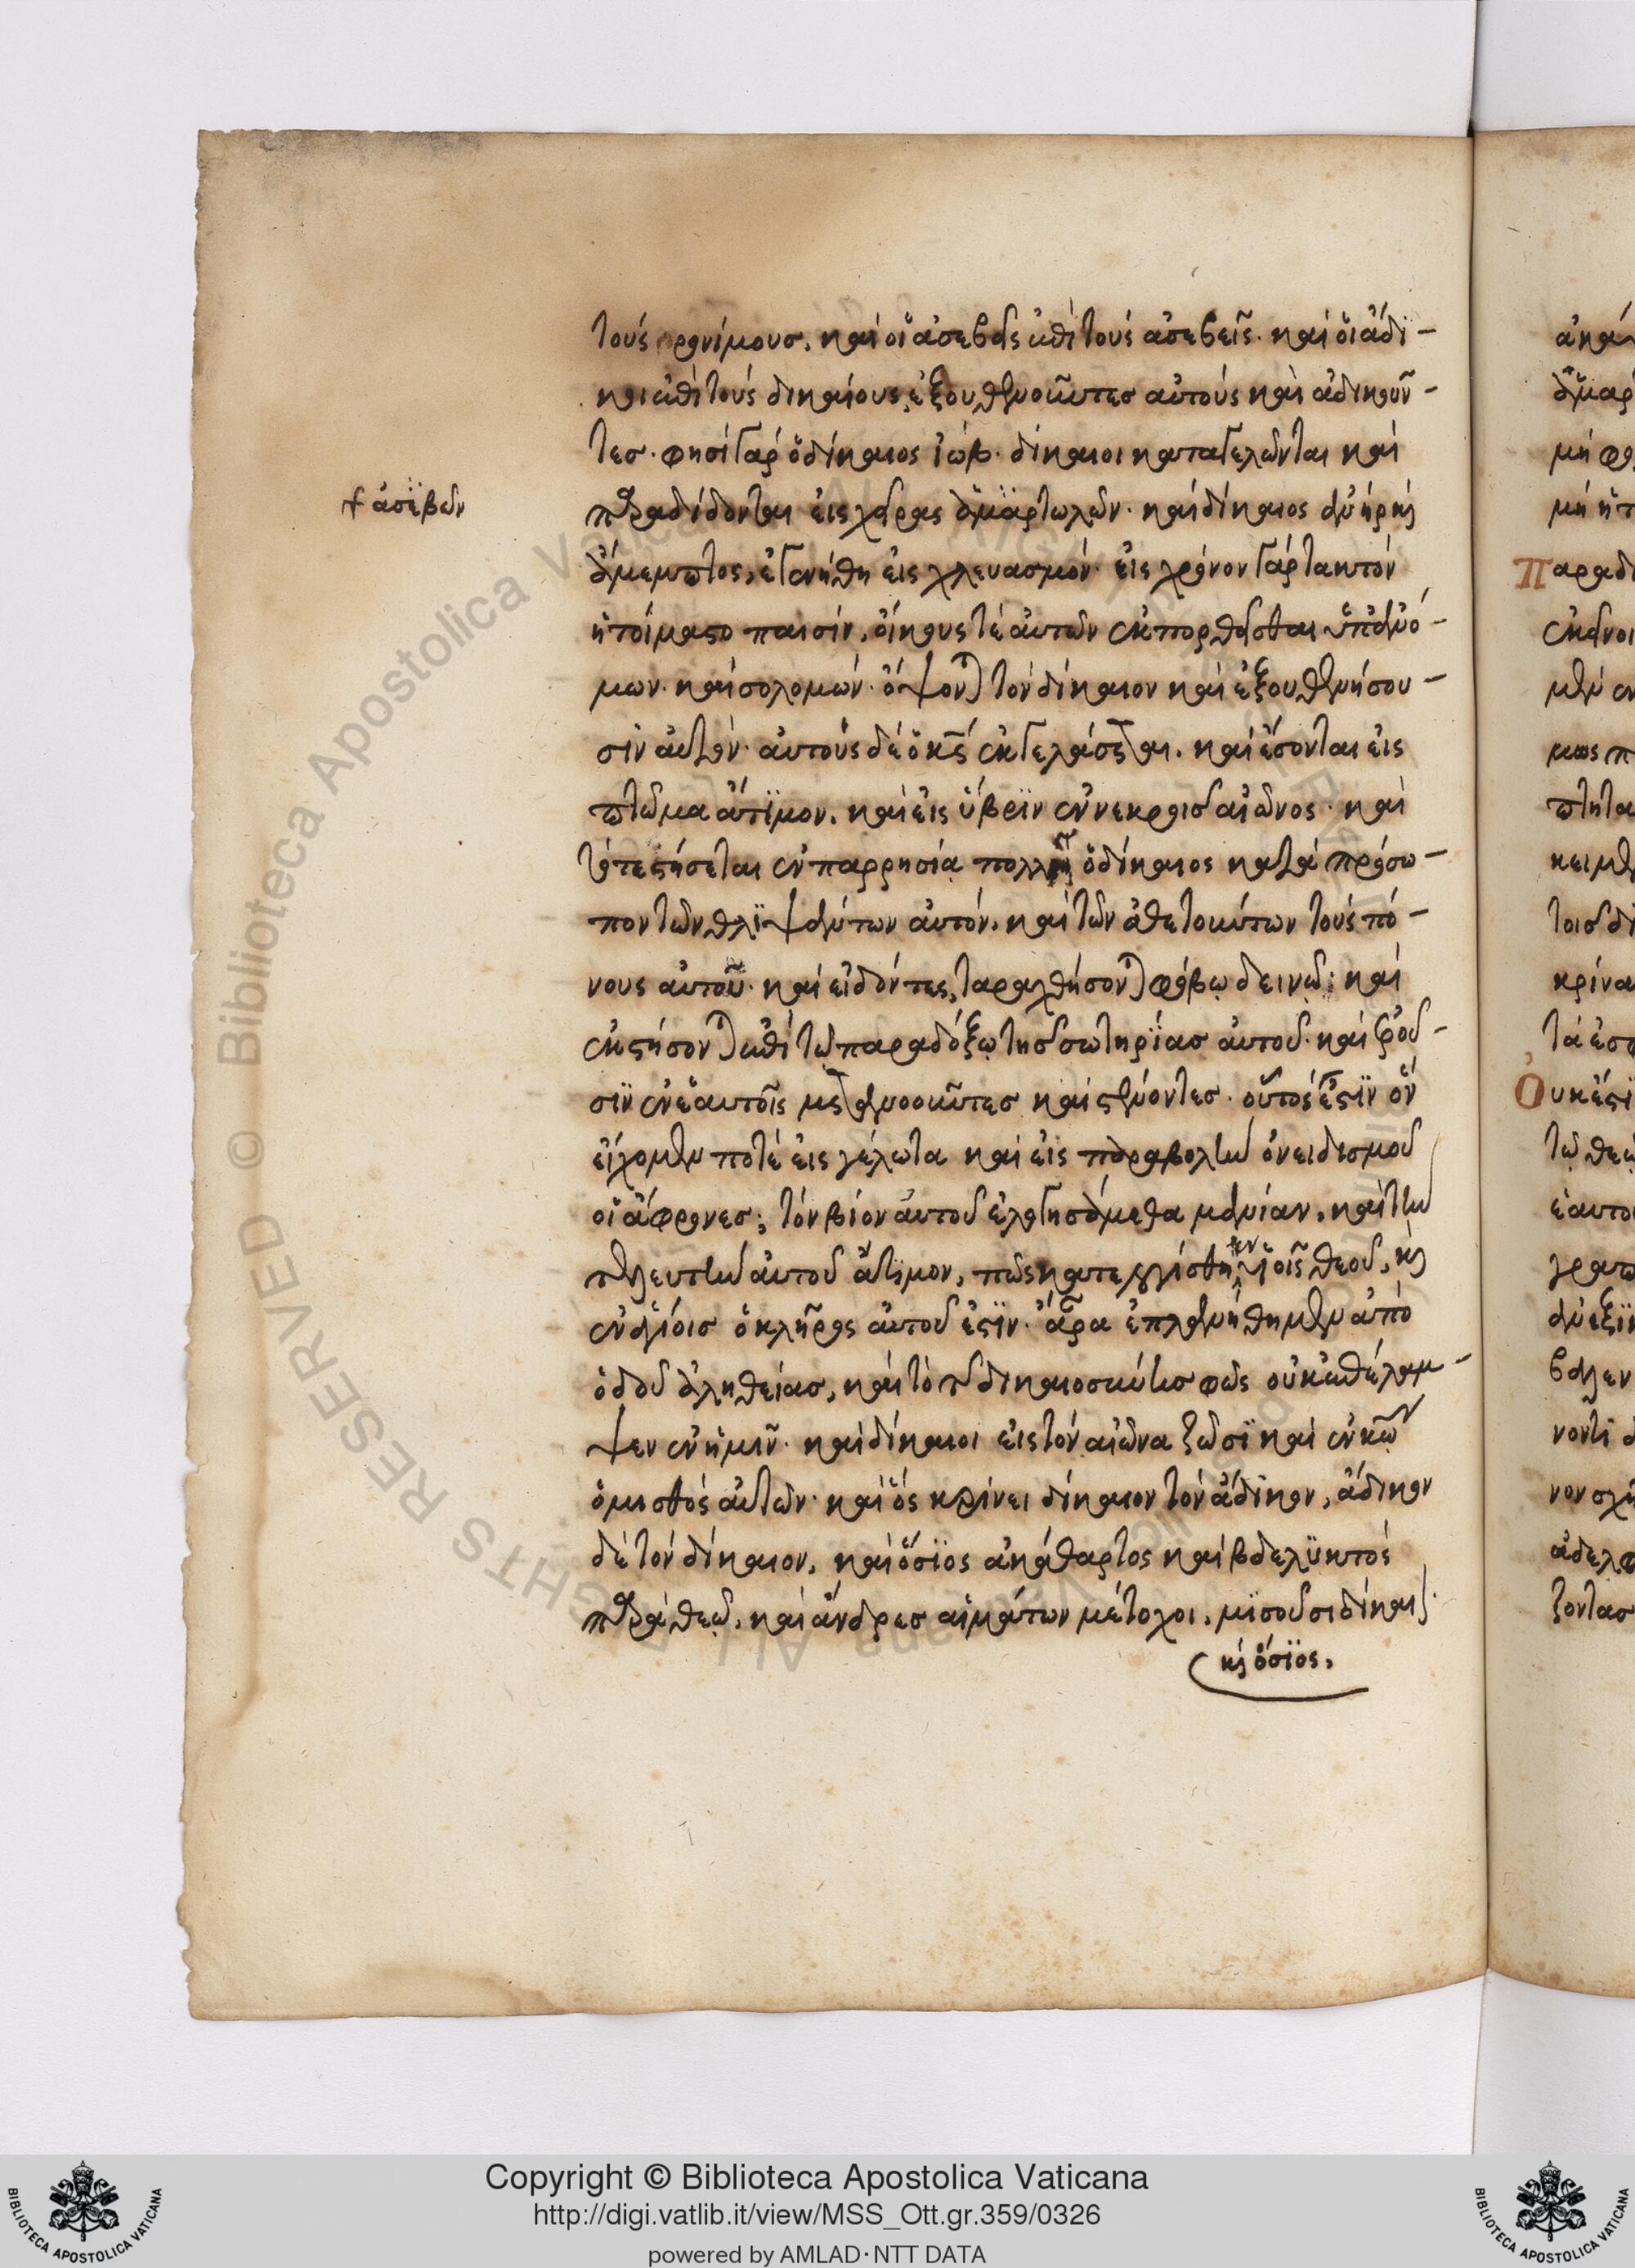 τοὺς φρονίμους. καὶ οἱ ἀσεβεῖς ἐπὶ τοὺς ἀσεβεῖς. καὶ οἱ ἄδι-
κοι ἐπὶ τοὺς δικαίους, ἐξουθενοῦντες αὐτοὺς καὶ ἀδικοῦν-
τες. φησὶ γὰρ ὁ δίκαιος ἰώβ. δίκαιοι καταγελῶνται καὶ
+ ἀσεβῶν
παραδίδονται εἰς χεῖρας ἁμαρτωλῶν. καὶ δίκαιος ἀνὴρ κ(αὶ)
ἄμεμπτος, ἐγενήθη εἰς χλευασμόν. εἰς χρόνον γὰρ τακτὸν
ἡτοίμαστο παισίν, οἴκους τὲ αὐτῶν ἐκπορθεῖσθαι ὑπ' ἀνό-
μων. καὶ σολομών. ὄψον(ται) τὸν δίκαιον καὶ ἐξουθενήσου-
σιν αὐτόν. αὐτοὺς δὲ ὁ κς ἐκγελάσεται. καὶ ἔσονται εἰς
πτῶμα ἄτϊμον. καὶ εἰς ὕβρϊν ἐν νεκροῖς δι' αἰῶνος. καὶ
τότε στήσεται ἐν παρρησίᾳ πολλῇ ὁ δίκαιος κατὰ πρόσω-
πον τῶν θλϊψάντων αὐτόν. καὶ τῶν ἀθετούντων τοὺς πό-
νους αὐτοῦ. καὶ εἰδόντες, ταραχθήσον(ται) φόβῳ δεινῷ: καὶ
ἐκστήσον(ται) ἐπὶ τῷ παραδόξῳ τῆς σωτηρΐας αὐτοῦ. καὶ ἐροῦ-
σϊν ἐν ἑαυτοῖς μετανοοῦντες καὶ στένοντες. οὗτος ἐστϊν ὃν
εἴχομεν ποτὲ εἰς γέλωτα καὶ εἰς παραβολὴν ὀνειδισμοῦ
οἱ ἄφρονες; τὸν βίον αὐτοῦ ἐλογησάμεθα μανίαν. καὶ τὴν
τελευτὴν αὐτοῦ ἄτϊμον, πῶς κατελογίσθη ἐν υἱοῖς θεοῦ, κ(αὶ)
ἐν ἁγίοις ὁ κλῆρος αὐτοῦ ἐστϊν. ἄρα ἐπλανήθημεν ἀπὸ
ὁδοῦ ἀληθείας, καὶ τὸ τῆς δικαιοσύνης φῶς οὐκ ἐπέλαμ-
ψεν ἐν ἡμῖν. καὶ δίκαιοι εἰς τὸν αἰῶνα ζῶσϊ καὶ ἐν κω
ὁ μισθὸς αὐτῶν. καὶ ὃς κρίνει δίκαιον τὸν ἄδικον, ἄδικον
δὲ τὸν δίκαιον, καὶ ὅσϊος ἀκάθαρτος καὶ βδελϋκτὸς
παρὰ θεῷ. καὶ ἄνδρες αἱμάτων μέτοχοι. μϊσοῦσι δίκαι-
κ(αὶ) ὅσϊος.
Copyright © Biblioteca Apostolica Vaticana
http://digi.vatlib.it/view/MSS_Ott.gr.359/0326
powered by AMLAD·NTT DATA